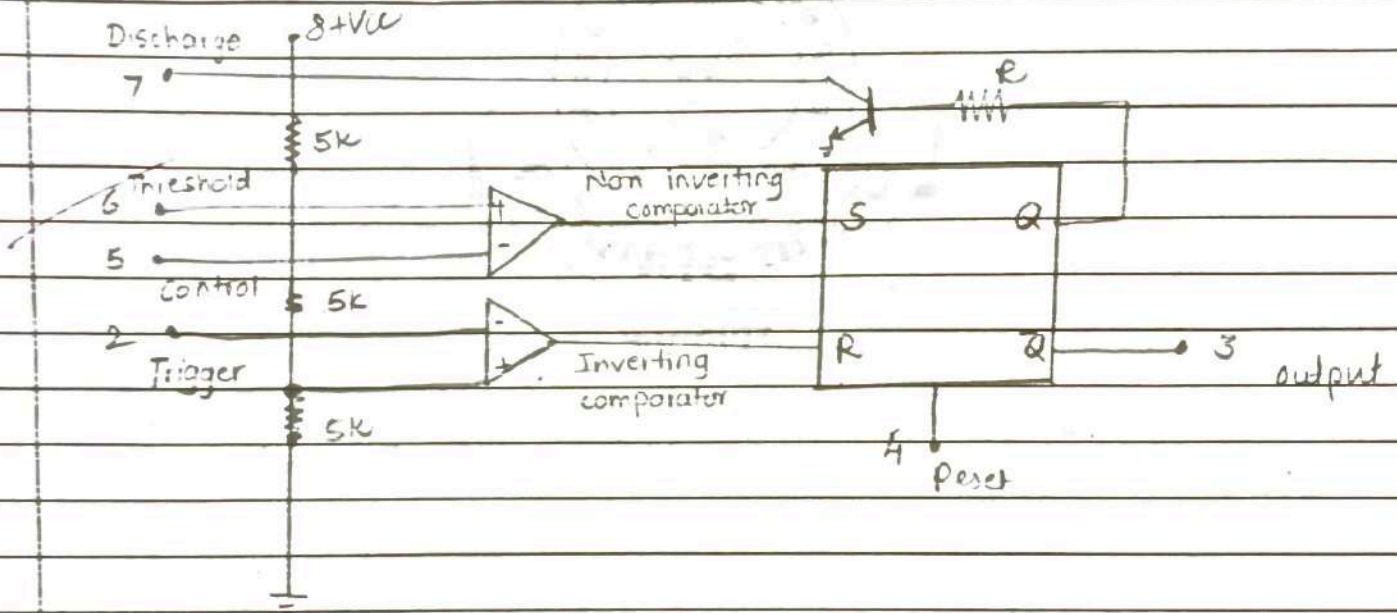 8 +Vcc
Discharge
7
R
5K
Threshold
6
Non inverting
comparator
+
S
Q
-
5
control
5K
2
-
R
Q̅
3
Trigger
+
Inverting
comparator
output
5K
4
Reset